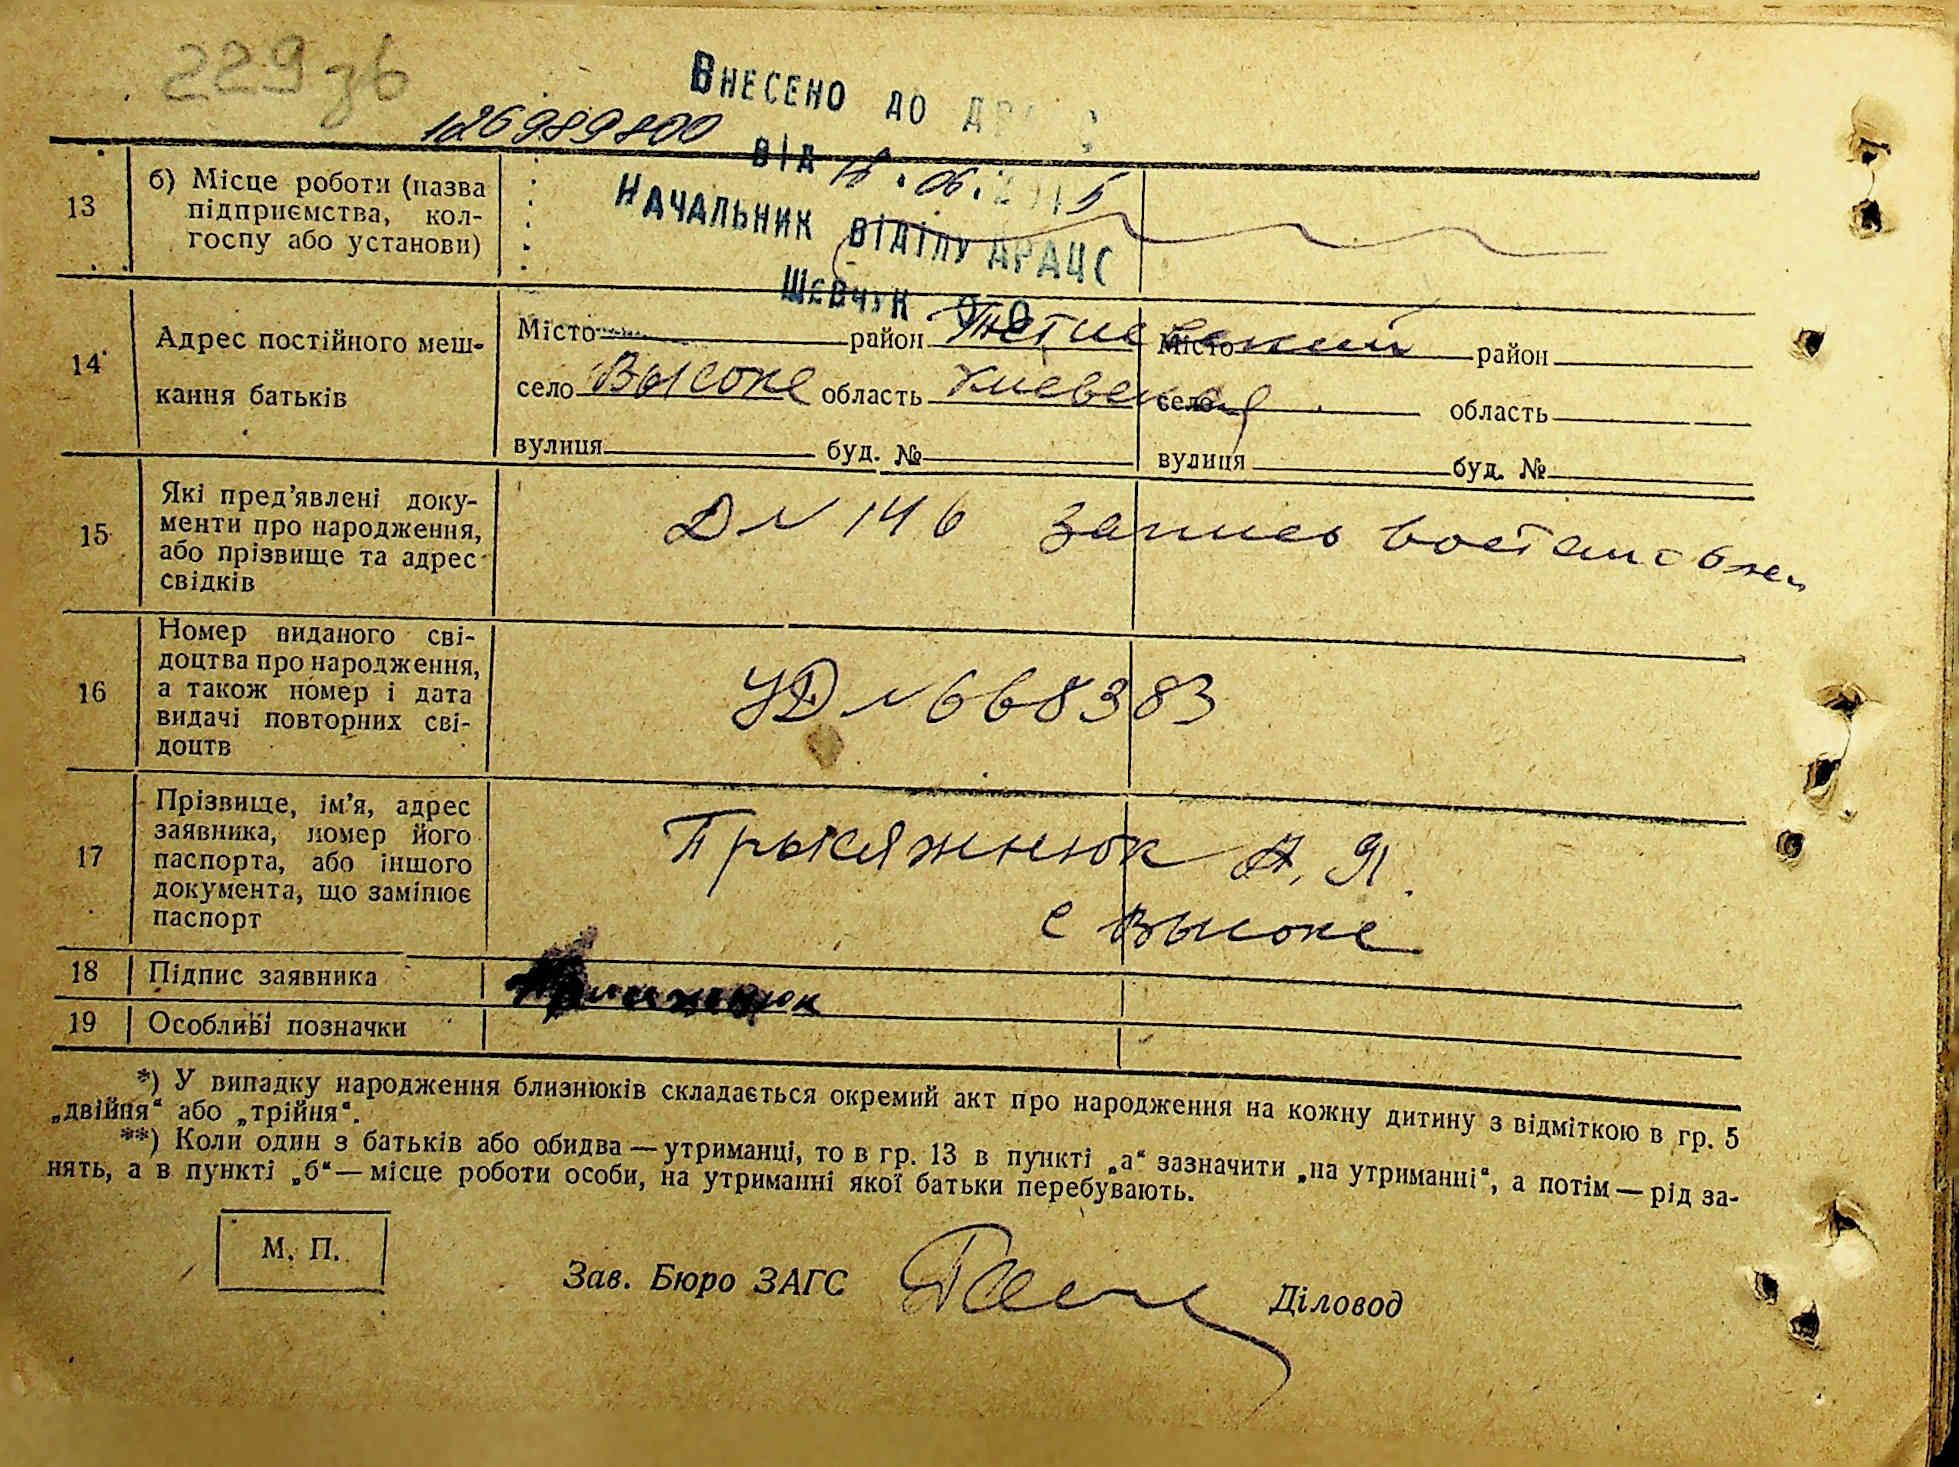 229 зв
126989800
Внесено до
від 18.06.2015
Начальник відділу ДРАЦС
Шевчук О О
13
б) Місце роботи (назва
підприємства, кол-
госпу або установи)
14
Адрес постійного меш-
кання батьків
Місто район Тетиевский
село Высоке область Киевская
вулиця буд. №
Місто район
село область
вулиця буд. №
15
Які пред’явлені доку-
менти про народження,
або прізвище та адрес
свідків
Д № 146 запись востановлен
16
Номер виданого сві-
доцтва про народження,
а також номер і дата
видачі повторних сві-
доцтв
УД № 668383
17
Прізвище, ім’я, адрес
заявника, номер його
паспорта, або іншого
документа, що замінює
паспорт
Прысяжнюк А. Я.
с Высоке
18 Підпис заявника
19 Особливі позначки
*) У випадку народження близнюків складається окремий акт про народження на кожну дитину з відміткою в гр. 5
„двійня“ або „трійня“.
**) Коли один з батьків або обидва — утриманці, то в гр. 13 в пункті „а“ зазначити „на утриманні“, а потім — рід за-
нять, а в пункті „б“ — місце роботи особи, на утриманні якої батьки перебувають.
М. П.
Зав. Бюро ЗАГС Діловод